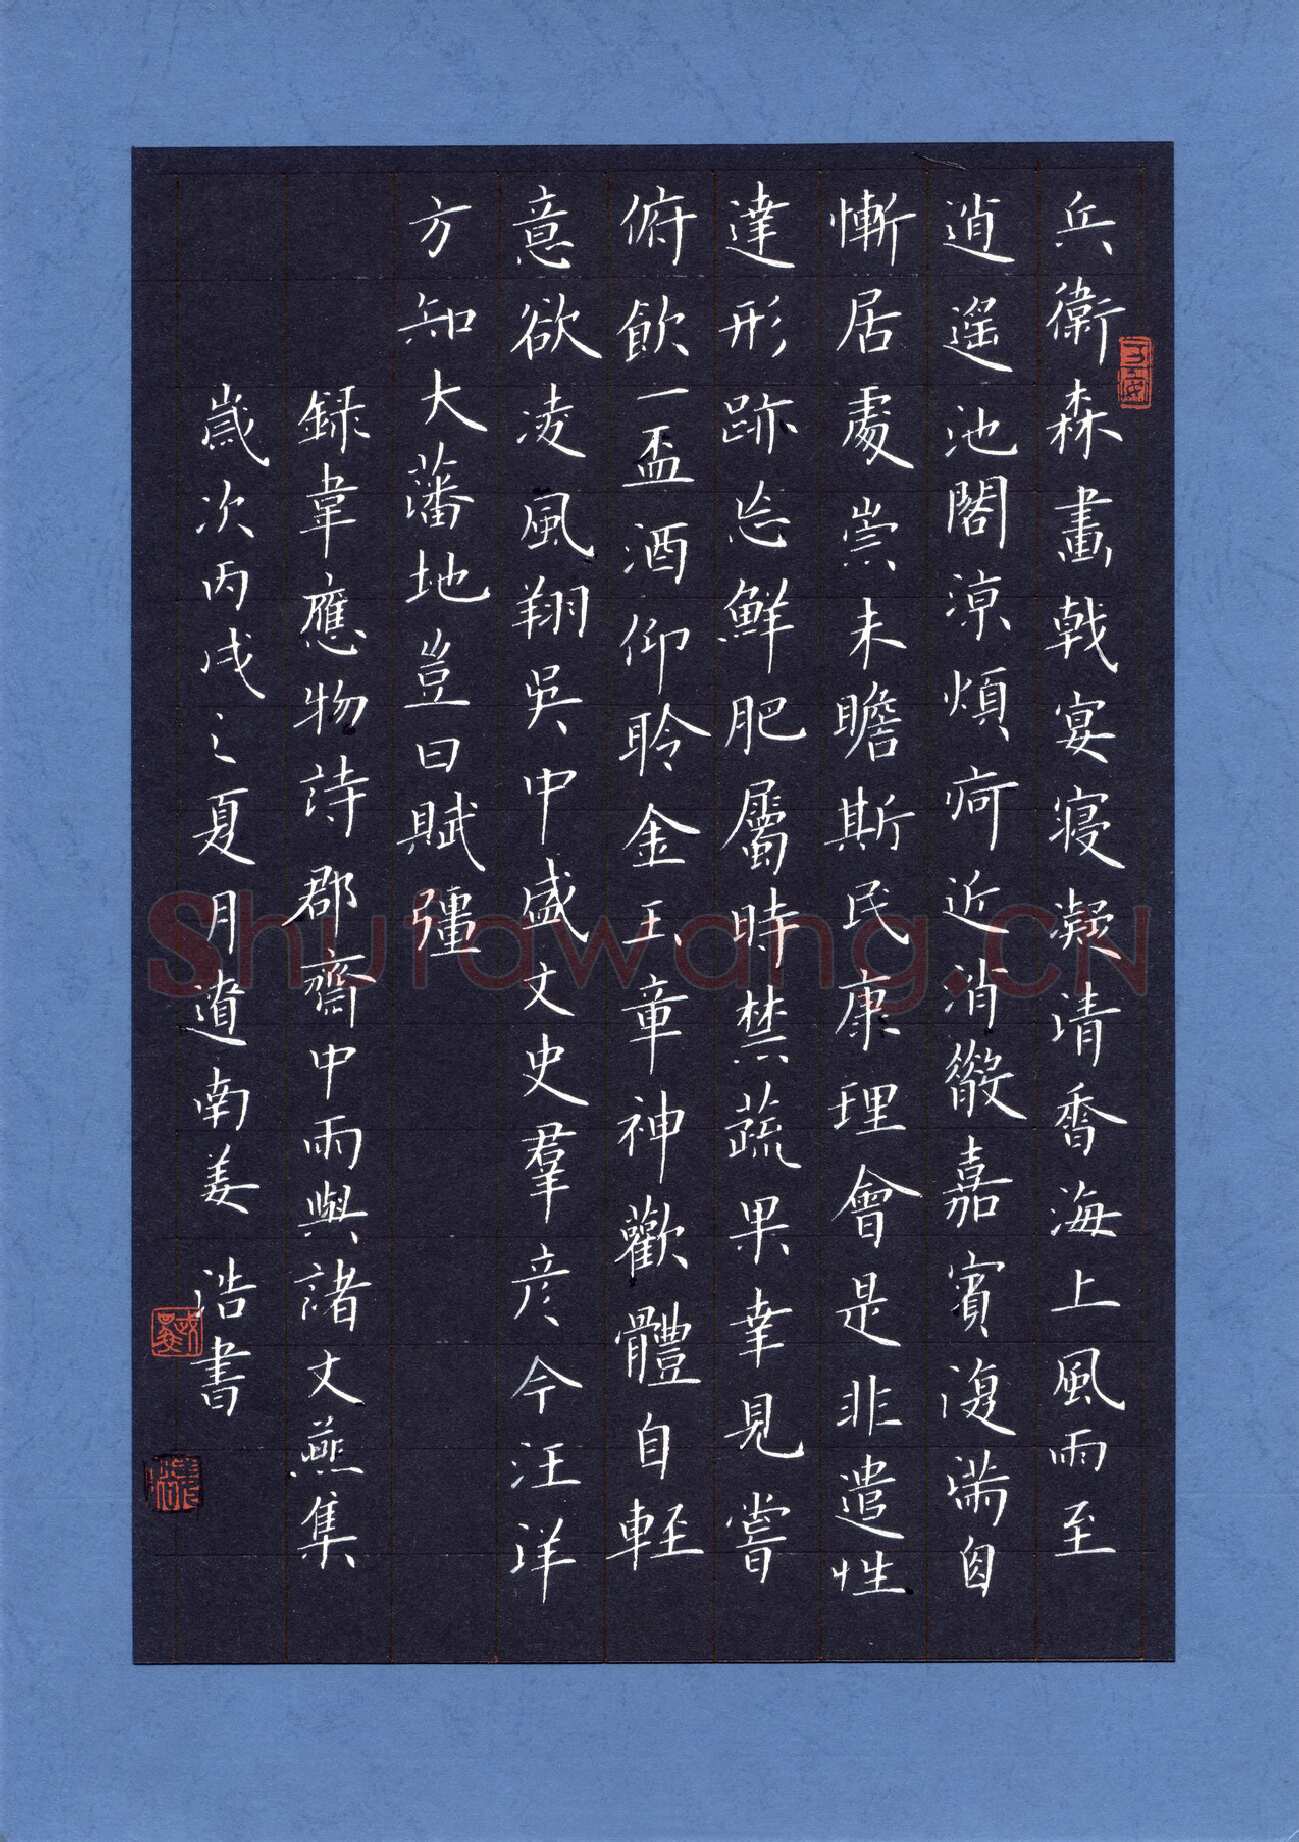 兵衛森畫戟宴寢凝清香海上風雨至
逍遥池閣涼煩疴近消散嘉賓復滿自
慚居處崇未瞻斯民康理會是非遣性
達形跡忘鮮肥屬時禁蔬果幸見嘗
俯飲一盃酒仰聆金玉章神歡體自輕
意欲凌風翔吳中盛文史羣彦今汪洋
方知大藩地豈曰賦彊
録韋應物詩郡齋中雨與諸文燕集
歲次丙戌之夏月遼南姜浩書
Shufawang.CN